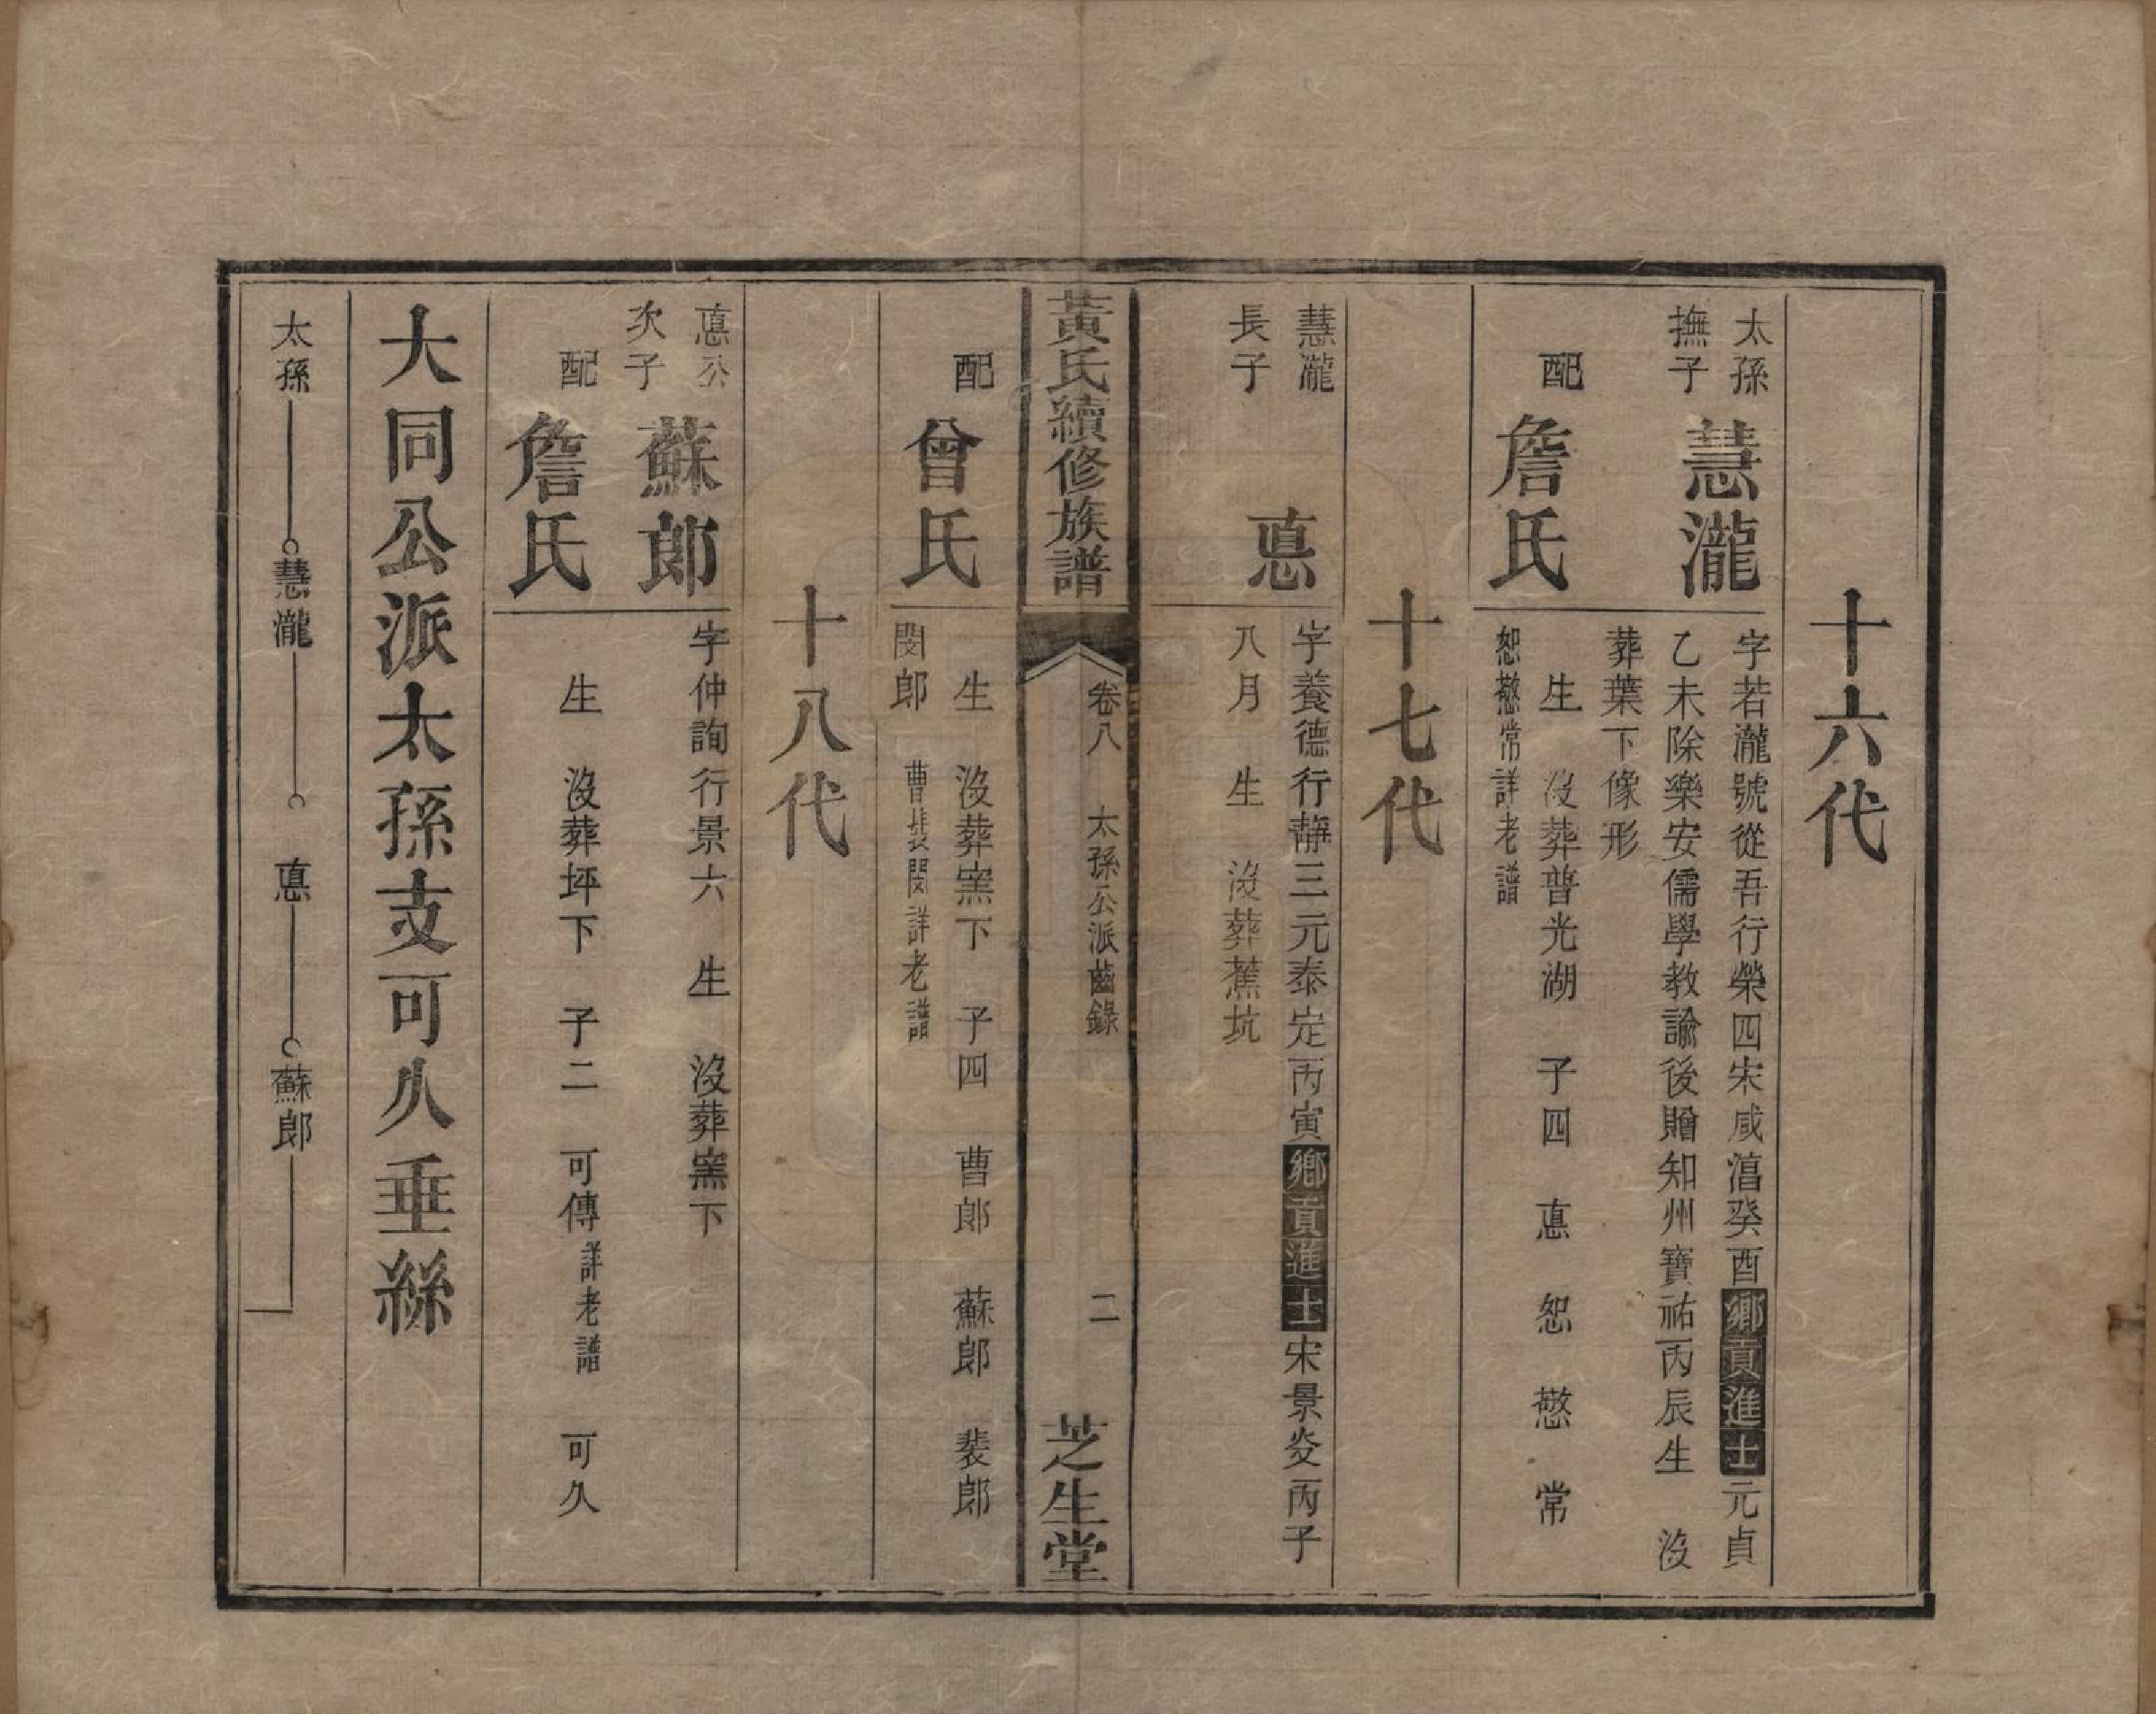 十六代
太孫
撫子
慧瀧
字若瀧號從吾行榮四宋咸淳癸酉鄉貢進士元貞
乙未除樂安儒學教諭後贈知州寶祐丙辰生 沒
葬葉下像形
配
詹氏
生 沒葬普光湖 子四 惪 恕 憨 常
恕憨常詳老譜
十七代
慧瀧
長子
惪
字養德行靜三元泰定丙寅鄉貢進士宋景炎丙子
八月 生 沒葬蕉坑
黃氏續修族譜
卷八 太孫公派齒錄
二
芝生堂
配
曾氏
生 沒葬窯下 子四 曹郎 蘇郎 裴郎
閔郎 曹裴閔詳老譜
十八代
惪公
次子
蘇郎
字仲詢行景六 生 沒葬窯下
配
詹氏
生 沒葬坪下 子二 可傳詳老譜 可久
大同公派太孫支可久垂絲
太孫 慧瀧 惪 蘇郎